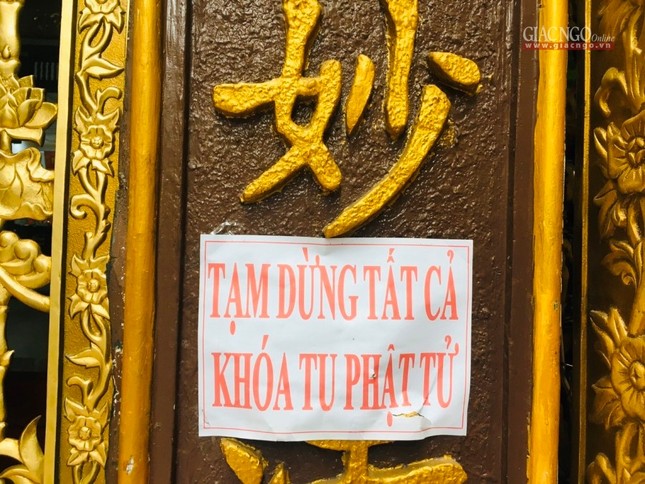 妙
GIACNGO Online
www.giacngo.vn
TẠM DỪNG TẤT CẢ
KHÓA TU PHẬT TỬ